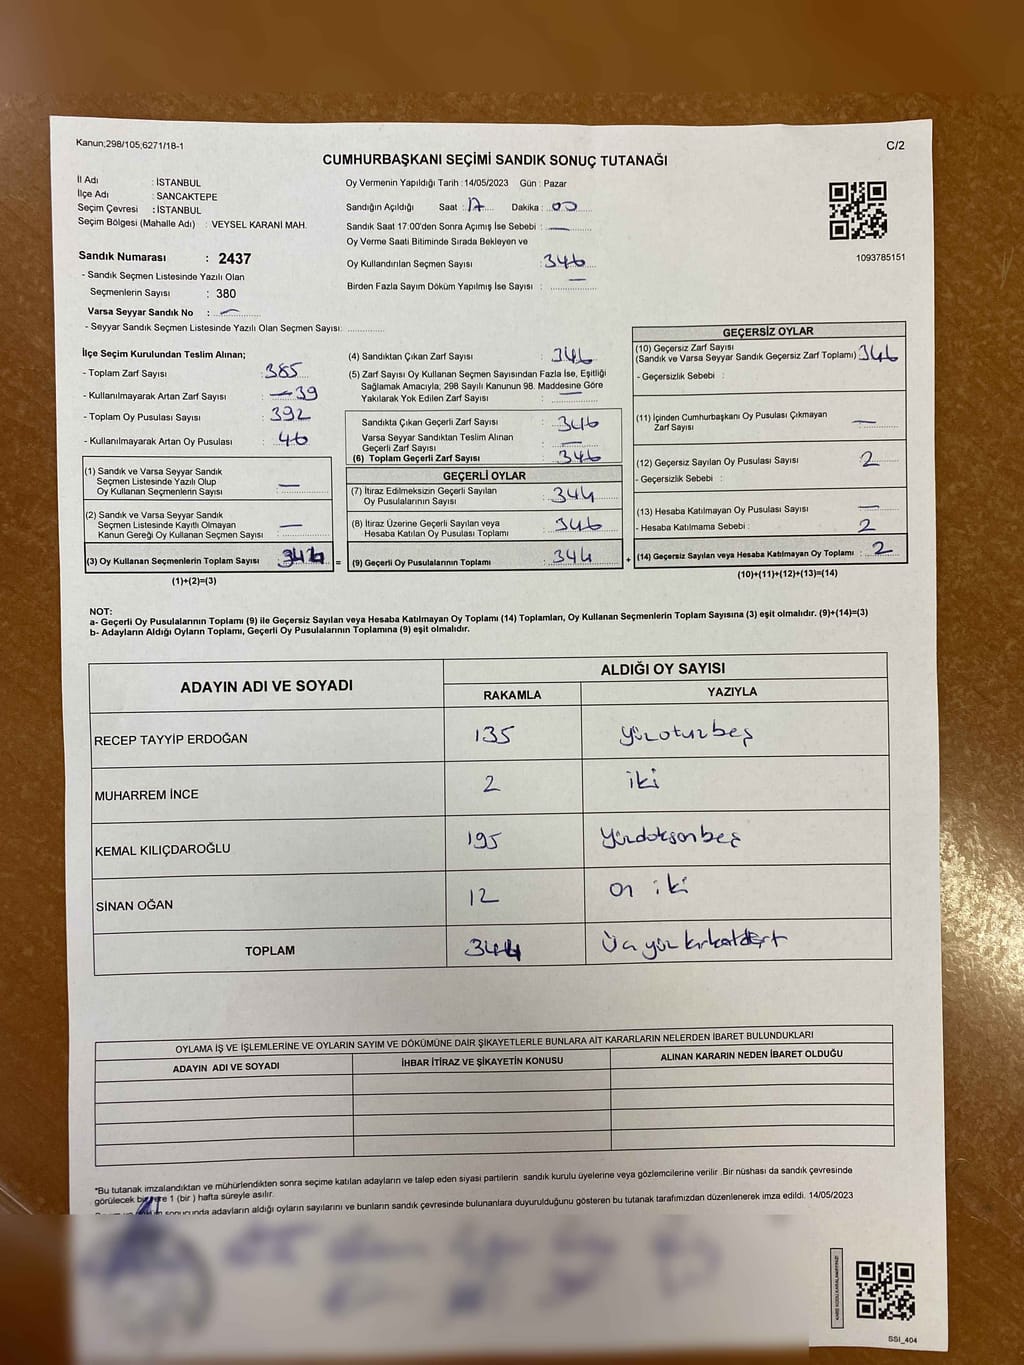 Kanun;298/105;6271/18-1
C/2
CUMHURBAŞKANI SEÇİMİ SANDIK SONUÇ TUTANAĞI
İl Adı : İSTANBUL
İlçe Adı : SANCAKTEPE
Seçim Çevresi : İSTANBUL
Seçim Bölgesi (Mahalle Adı) : VEYSEL KARANİ MAH.
Sandık Numarası : 2437
- Sandık Seçmen Listesinde Yazılı Olan
Seçmenlerin Sayısı : 380
Varsa Seyyar Sandık No : —
- Seyyar Sandık Seçmen Listesinde Yazılı Olan Seçmen Sayısı: ............
Oy Vermenin Yapıldığı Tarih :14/05/2023 Gün : Pazar
Sandığın Açıldığı Saat : 17 Dakika : 00
Sandık Saat 17:00'den Sonra Açımış İse Sebebi : —
Oy Verme Saati Bitiminde Sırada Bekleyen ve
Oy Kullandırılan Seçmen Sayısı : 346
Birden Fazla Sayım Döküm Yapılmış İse Sayısı : —
1093785151
İlçe Seçim Kurulundan Teslim Alınan;
- Toplam Zarf Sayısı : 385
- Kullanılmayarak Artan Zarf Sayısı : —39
- Toplam Oy Pusulası Sayısı : 392
- Kullanılmayarak Artan Oy Pusulası : 46
(1) Sandık ve Varsa Seyyar Sandık
Seçmen Listesinde Yazılı Olup
Oy Kullanan Seçmenlerin Sayısı : —
(2) Sandık ve Varsa Seyyar Sandık
Seçmen Listesinde Kayıtlı Olmayan
Kanun Gereği Oy Kullanan Seçmen Sayısı : —
(3) Oy Kullanan Seçmenlerin Toplam Sayısı : 346 =
(1)+(2)=(3)
(4) Sandıktan Çıkan Zarf Sayısı : 346
(5) Zarf Sayısı Oy Kullanan Seçmen Sayısından Fazla İse, Eşitliği
Sağlamak Amacıyla, 298 Sayılı Kanunun 98. Maddesine Göre
Yakılarak Yok Edilen Zarf Sayısı : —
Sandıkta Çıkan Geçerli Zarf Sayısı : 346
Varsa Seyyar Sandıktan Teslim Alınan
Geçerli Zarf Sayısı : —
(6) Toplam Geçerli Zarf Sayısı : 346
GEÇERLİ OYLAR
(7) İtiraz Edilmeksizin Geçerli Sayılan
Oy Pusulalarının Sayısı : 344
(8) İtiraz Üzerine Geçerli Sayılan veya
Hesaba Katılan Oy Pusulası Toplamı : 346
(9) Geçerli Oy Pusulalarının Toplamı : 344 +
GEÇERSİZ OYLAR
(10) Geçersiz Zarf Sayısı
(Sandık ve Varsa Seyyar Sandık Geçersiz Zarf Toplamı) 346
- Geçersizlik Sebebi :
(11) İçinden Cumhurbaşkanı Oy Pusulası Çıkmayan
Zarf Sayısı : —
(12) Geçersiz Sayılan Oy Pusulası Sayısı : 2
- Geçersizlik Sebebi :
(13) Hesaba Katılmayan Oy Pusulası Sayısı : —
- Hesaba Katılmama Sebebi : 2
(14) Geçersiz Sayılan veya Hesaba Katılmayan Oy Toplamı : 2
(10)+(11)+(12)+(13)=(14)
NOT:
a- Geçerli Oy Pusulalarının Toplamı (9) ile Geçersiz Sayılan veya Hesaba Katılmayan Oy Toplamı (14) Toplamları, Oy Kullanan Seçmenlerin Toplam Sayısına (3) eşit olmalıdır. (9)+(14)=(3)
b- Adayların Aldığı Oyların Toplamı, Geçerli Oy Pusulalarının Toplamına (9) eşit olmalıdır.
ADAYIN ADI VE SOYADI
ALDIĞI OY SAYISI
RAKAMLA YAZIYLA
RECEP TAYYİP ERDOĞAN 135 yüzoturbeş
MUHARREM İNCE 2 iki
KEMAL KILIÇDAROĞLU 195 yüzdoksanbeş
SİNAN OĞAN 12 on iki
TOPLAM 344 üç yüz kırkdört
OYLAMA İŞ VE İŞLEMLERİNE VE OYLARIN SAYIM VE DÖKÜMÜNE DAİR ŞİKAYETLERLE BUNLARA AİT KARARLARIN NELERDEN İBARET BULUNDUKLARI
ADAYIN ADI VE SOYADI İHBAR İTİRAZ VE ŞİKAYETİN KONUSU ALINAN KARARIN NEDEN İBARET OLDUĞU
*Bu tutanak imzalandıktan ve mühürlendikten sonra seçime katılan adayların ve talep eden siyasi partilerin sandık kurulu üyelerine veya gözlemcilerine verilir .Bir nüshası da sandık çevresinde
görülecek bir yere 1 (bir ) hafta süreyle asılır.
sonucunda adayların aldığı oyların sayılarını ve bunların sandık çevresinde bulunanlara duyurulduğunu gösteren bu tutanak tarafımızdan düzenlenerek imza edildi. 14/05/2023
SSI_404